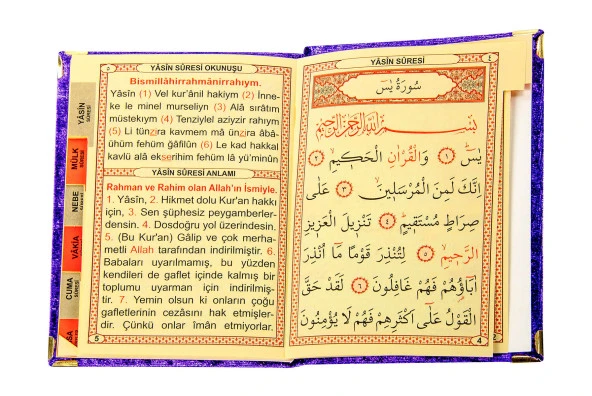 YÂSİN SÛRESİ
٤
سُورَةُ يٰسٓ
بِسْــــمِ اللّٰهِ الرَّحْمٰنِ الرَّحِيمِ
يٰسٓ ﴿١﴾ وَالْقُرْاٰنِ الْحَكِيمِ ﴿٢﴾
اِنَّكَ لَمِنَ الْمُرْسَلِينَ ﴿٣﴾ عَلٰى
صِرَاطٍ مُسْتَقِيمٍ ﴿٤﴾ تَنْزِيلَ الْعَزِيزِ
الرَّحِيمِ ﴿٥﴾ لِتُنْذِرَ قَوْمًا مَٓا اُنْذِرَ
اٰبَٓاؤُهُمْ فَهُمْ غَافِلُونَ ﴿٦﴾ لَقَدْ حَقَّ
الْقَوْلُ عَلٰٓى اَكْثَرِهِمْ فَهُمْ لَا يُؤْمِنُونَ
4
٥
YÂSİN SÛRESİ OKUNUŞU
Bismillâhirrahmânirrahıym.
Yâsîn (1) Vel kur'ânil hakiym (2) İnne-
ke le minel murseliyn (3) Alâ sırâtım
müstekıym (4) Tenziylel aziyzir rahıym
(5) Li tünzira kavmem mâ ünzira âbâ-
ühüm fehüm ğâfilûn (6) Le kad hakkal
kavlü alâ ekserihim fehüm lâ yü'minûn
YÂSİN SÛRESİ ANLAMI
Rahman ve Rahim olan Allah'ın İsmiyle.
1. Yâsîn, 2. Hikmet dolu Kur'an hakkı
için, 3. Sen şüphesiz peygamberler-
densin. 4. Dosdoğru yol üzerindesin.
5. (Bu Kur'an) Gâlip ve çok merha-
metli Allah tarafından indirilmiştir. 6.
Babaları uyarılmamış, bu yüzden
kendileri de gaflet içinde kalmış bir
toplumu uyarman için indirilmiş-
tir. 7. Yemin olsun ki onların çoğu
gafletlerinin cezâsını hak etmişler-
dir. Çünkü onlar îmân etmiyorlar.
5
YÂSİN
SÛRESİ
MÜLK
SÛRESİ
NEBE
SÛRESİ
VÂKIA
SÛRESİ
CUMA
SÛRESİ